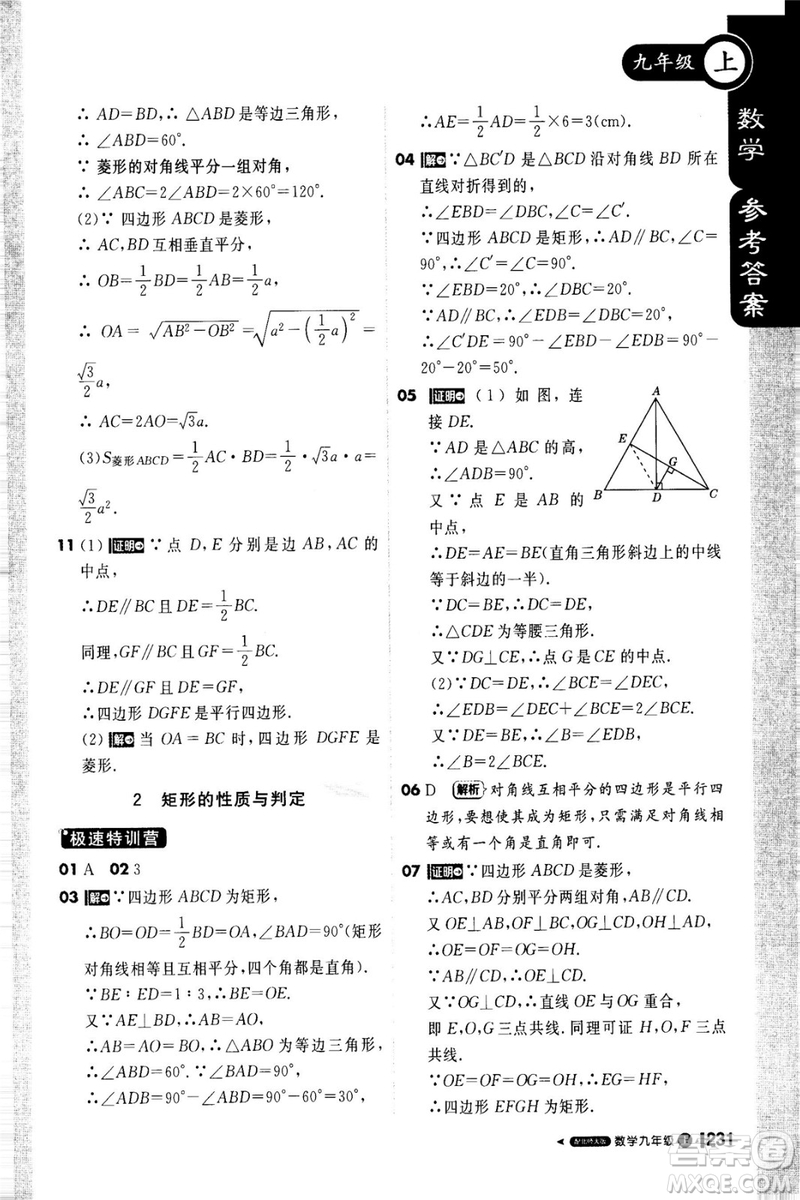 九年级 上
数学 参考答案
∴ AD=BD,∴ △ABD 是等边三角形,
∴ ∠ABD=60°.
∵ 菱形的对角线平分一组对角,
∴ ∠ABC=2∠ABD=2×60°=120°.
(2)∵ 四边形 ABCD 是菱形,
∴ AC,BD 互相垂直平分,
∴ OB=1/2BD=1/2AB=1/2a,
∴ OA=√(AB²-OB²)=√(a²-(1/2a)²)=
√3/2a,
∴ AC=2AO=√3a.
(3)S菱形ABCD=1/2AC·BD=1/2·√3a·a=
√3/2a².
11 (1) 证明 ∵ 点 D,E 分别是边 AB,AC 的
中点,
∴DE∥BC 且 DE=1/2BC.
同理,GF∥BC 且 GF=1/2BC.
∴DE∥GF 且 DE=GF,
∴四边形 DGFE 是平行四边形.
(2) 解 当 OA=BC 时,四边形 DGFE 是
菱形.
2 矩形的性质与判定
极速特训营
01 A 02 3
03 解 ∵四边形 ABCD 为矩形,
∴BO=OD=1/2BD=OA,∠BAD=90°(矩形
对角线相等且互相平分,四个角都是直角).
∵BE∶ED=1∶3,∴BE=OE.
又∵AE⊥BD,∴AB=AO,
∴AB=AO=BO,∴△ABO 为等边三角形,
∴∠ABD=60°.∵∠BAD=90°,
∴∠ADB=90°-∠ABD=90°-60°=30°,
∴AE=1/2AD=1/2×6=3(cm).
04 解 ∵△BC′D 是△BCD 沿对角线 BD 所在
直线对折得到的,
∴∠EBD=∠DBC,∠C=∠C′.
∵四边形 ABCD 是矩形,∴AD∥BC,∠C=
90°,∴∠C′=90°.
∵∠EBD=20°,∴∠DBC=20°.
∵AD∥BC,∴∠EDB=∠DBC=20°,
∴∠C′DE=90°-∠EBD-∠EDB=90°-
20°-20°=50°.
05 证明 (1) 如图,连
接 DE.
∵AD 是△ABC 的高,
∴∠ADB=90°.
又∵点 E 是 AB 的
中点,
A
E
G
B
D
C
∴DE=AE=BE(直角三角形斜边上的中线
等于斜边的一半).
∵DC=BE,∴DC=DE,
∴△CDE 为等腰三角形.
又∵DG⊥CE,∴点 G 是 CE 的中点.
(2)∵DE=DC,∴∠BCE=∠DEC,
∴∠EDB=∠DEC+∠BCE=2∠BCE.
又∵DE=BE,∴∠B=∠EDB,
∴∠B=2∠BCE.
06 D 解析 对角线互相平分的四边形是平行四
边形,要使其成为矩形,只需满足对角线相
等或有一个角是直角即可.
07 证明 ∵四边形 ABCD 是菱形,
∴AC,BD 分别平分两组对角,AB∥CD.
又 OE⊥AB,OF⊥BC,OG⊥CD,OH⊥AD,
∴OE=OF=OG=OH.
∵AB∥CD,∴OE⊥CD.
又∵OG⊥CD,∴直线 OE 与 OG 重合,
即 E,O,G 三点共线.同理可证 H,O,F 三点
共线.
又∵OE=OF=OG=OH,∴EG=HF,
∴四边形 EFGH 为矩形.
配北师大版 数学九年级 上 1231
答案圈
MXQE.COM